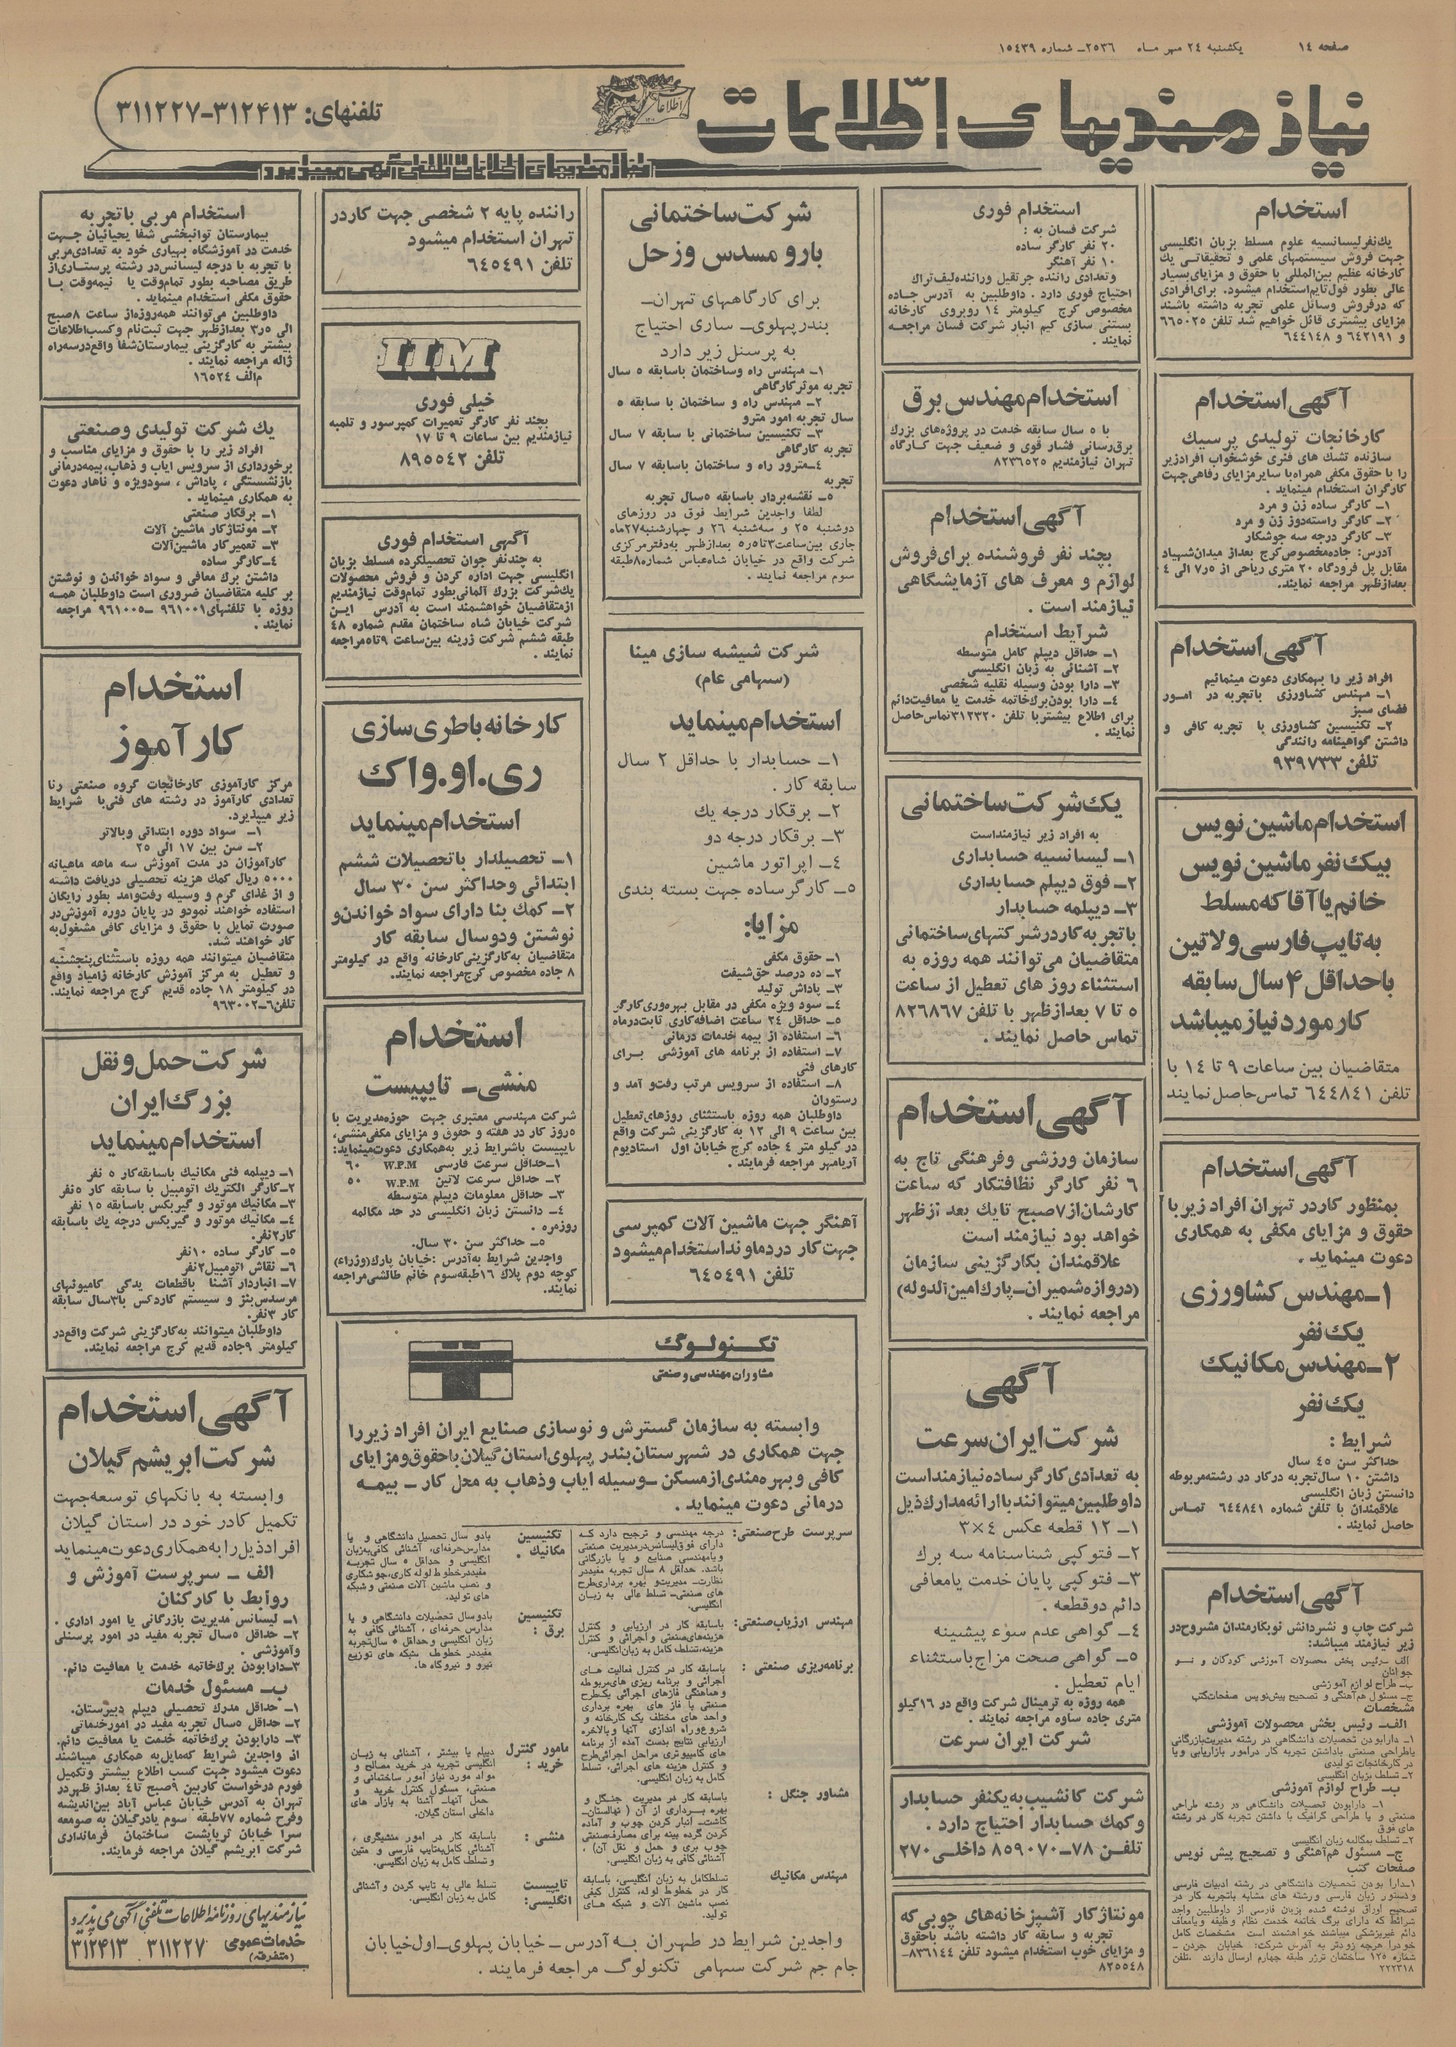 صفحه ۱۴
یکشنبه ۲۴ مهر ماه ۲۵۳۶ـ شماره ۱۵۴۳۹
نیازمندیهای اطلاعات
تلفنهای: ۳۱۲۴۱۳ـ۳۱۱۲۲۷
نیازمندیهای اطلاعات تلفنی آگهی میپذیرد
استخدام
یك‌نفر لیسانسیه علوم مسلط بزبان انگلیسی
جهت فروش سیستمهای علمی و تحقیقاتی یك
کارخانه عظیم بین‌المللی با حقوق و مزایای بسیار
عالی بطور فول‌تایم استخدام میشود. برای افرادی
که در فروش وسائل علمی تجربه داشته باشند
مزایای بیشتری قائل خواهیم شد تلفن ۶۶۵۰۲۵
و ۶۴۲۱۹۱ و ۶۴۴۱۴۸
آگهی استخدام
کارخانجات تولیدی پرسیك
سازنده تشك های فنری خوشخواب افراد زیر
را با حقوق مکفی همراه با سایر مزایای رفاهی جهت
کارگران استخدام مینماید .
۱ـ کارگر ساده زن و مرد
۲ـ کارگر راسته‌دوز زن و مرد
۳ـ کارگر درجه سه جوشکار
آدرس: جاده مخصوص کرج بعد از میدان شهیاد
مقابل پل فرودگاه ۲۰ متری ریاحی از ۷ر۵ الی ۴
بعدازظهر مراجعه نمایند.
آگهی استخدام
افراد زیر را بهمکاری دعوت مینمائیم
۱ـ مهندس کشاورزی باتجربه در امور
فضای سبز
۲ـ تکنیسین کشاورزی با تجربه کافی و
داشتن گواهینامه رانندگی
تلفن ۹۳۹۷۳۳
استخدام ماشین نویس
بیك نفر ماشین نویس
خانم یا آقا که مسلط
به تایپ فارسی و لاتین
با حداقل ۴ سال سابقه
کار مورد نیاز میباشد
متقاضیان بین ساعات ۹ تا ۱۴ با
تلفن ۶۴۴۸۴۱ تماس حاصل نمایند
آگهی استخدام
بمنظور کار در تهران افراد زیر با
حقوق و مزایای مکفی به همکاری
دعوت مینماید .
۱ـ مهندس کشاورزی
یك نفر
۲ـ مهندس مکانیك
یك نفر
شرایط :
حداکثر سن ۴۵ سال
داشتن ۱۰ سال تجربه در کار در رشته مربوطه
دانستن زبان انگلیسی
علاقمندان با تلفن شماره ۶۴۴۸۴۱ تماس
حاصل نمایند .
آگهی استخدام
شرکت چاپ و نشر دانش نو بکارمندان مشروح در
زیر نیازمند میباشد:
الف ـ رئیس پخش محصولات آموزشی کودکان و نو
جوانان
ب ـ طراح لوازم آموزشی
ج ـ مسئول هم‌آهنگی و تصحیح پیش‌نویس صفحات کتب
مشخصات
الف ـ رئیس بخش محصولات آموزشی
۱ـ دارا بودن تحصیلات دانشگاهی در رشته مدیریت بازرگانی
یا طراحی صنعتی با داشتن تجربه کار در امور بازاریابی و یا
در کارخانجات تولیدی
۲ـ تسلط بزبان انگلیسی
ب ـ طراح لوازم آموزشی
۱ـ دارا بودن تحصیلات دانشگاهی در رشته طراحی
صنعتی و یا طراحی گرافیک با داشتن تجربه کار در رشته
های فوق
۲ـ تسلط بمکالمه زبان انگلیسی
ج ـ مسئول هم‌آهنگی و تصحیح پیش نویس
صفحات کتب
۱ـ دارا بودن تحصیلات دانشگاهی در رشته ادبیات فارسی
و دستور زبان فارسی و رشته های مشابه با تجربه کار در
تصحیح اوراق نوشته شده بزبان فارسی از داوطلبین واجد
شرائط که دارای برگ خاتمه خدمت نظام وظیفه و یا معاف
دائم غیرپزشکی میباشند خواهشمند است مشخصات کامل
خود را هرچه زودتر به آدرس شرکت: خیابان جردن ـ
شماره ۱۲۵ ساختمان ترژر طبقه چهارم ارسال دارند . تلفن
۲۲۲۳۱۸
استخدام فوری
شرکت فسان به :
۲۰ نفر کارگر ساده
۱۰ نفر آهنگر
و تعدادی راننده جرثقیل و راننده لیفتراك
احتیاج فوری دارد . داوطلبین به آدرس جاده
مخصوص کرج کیلومتر ۱۴ روبروی کارخانه
بستنی سازی کیم انبار شرکت فسان مراجعه
نمایند .
استخدام مهندس برق
با ۵ سال سابقه خدمت در پروژه‌های بزرك
برق‌رسانی فشار قوی و ضعیف جهت کارگاه
تهران نیازمندیم ۸۲۳۶۵۲۵
آگهی استخدام
بچند نفر فروشنده برای فروش
لوازم و معرف های آزمایشگاهی
نیازمند است .
شرایط استخدام
۱ـ حداقل دیپلم کامل متوسطه
۲ـ آشنائی به زبان انگلیسی
۳ـ دارا بودن وسیله نقلیه شخصی
۴ـ دارا بودن برك خاتمه خدمت یا معافیت دائم
برای اطلاع بیشتر با تلفن ۳۱۲۳۲۰ تماس حاصل
نمایند .
یك شرکت ساختمانی
به افراد زیر نیازمند است
۱ـ لیسانسیه حسابداری
۲ـ فوق دیپلم حسابداری
۳ـ دیپلمه حسابدار
با تجربه کار در شرکتهای ساختمانی
متقاضیان می‌توانند همه روزه به
استثناء روز های تعطیل از ساعت
۵ تا ۷ بعدازظهر با تلفن ۸۲۶۸۶۷
تماس حاصل نمایند .
آگهی استخدام
سازمان ورزشی و فرهنگی تاج به
۶ نفر کارگر نظافتکار که ساعت
کارشان از ۷ صبح تا یك بعد از ظهر
خواهد بود نیازمند است
علاقمندان بکارگزینی سازمان
(دروازه شمیران ـ پارك امین‌الدوله)
مراجعه نمایند .
آگهی
شرکت ایران سرعت
به تعدادی کارگر ساده نیازمند است
داوطلبین میتوانند با ارائه مدارك ذیل
۱ـ ۱۲ قطعه عکس ۴×۳
۲ـ فتوکپی شناسنامه سه برك
۳ـ فتوکپی پایان خدمت یا معافی
دائم دو قطعه .
۴ـ گواهی عدم سوء پیشینه
۵ـ گواهی صحت مزاج باستثناء
ایام تعطیل .
همه روزه به ترمینال شرکت واقع در ۱۶ کیلو
متری جاده ساوه مراجعه نمایند .
شرکت ایران سرعت
شرکت کانشیب به یکنفر حسابدار
و کمك حسابدار احتیاج دارد .
تلفن ۷۸ـ۸۵۹۰۷۰ داخلی ۲۷۰
مونتاژکار آشپزخانه‌های چوبی که
تجربه و سابقه کار داشته باشد باحقوق
و مزایای خوب استخدام میشود تلفن ۸۳۶۱۴۴ـ
۸۲۵۵۴۸
شرکت ساختمانی
بارو مسدس و زحل
برای کارگاههای تهران ـ
بندر پهلوی ـ ساری احتیاج
به پرسنل زیر دارد
۱ـ مهندس راه و ساختمان باسابقه ۵ سال
تجربه موثر کارگاهی
۲ـ مهندس راه و ساختمان با سابقه ۵
سال تجربه امور مترو
۳ـ تکنیسین ساختمانی با سابقه ۷ سال
تجربه کارگاهی
۴ـ مترور راه و ساختمان باسابقه ۷ سال
تجربه
۵ـ نقشه‌بردار باسابقه ۵ سال تجربه
لطفا واجدین شرایط فوق در روزهای
دوشنبه ۲۵ و سه‌شنبه ۲۶ و چهارشنبه ۲۷ ماه
جاری بین ساعت ۳ تا ۵ر۵ بعدازظهر به دفتر مرکزی
شرکت واقع در خیابان شاه‌عباس شماره ۸ طبقه
سوم مراجعه نمایند .
شرکت شیشه سازی مینا
(سهامی عام)
استخدام مینماید
۱ـ حسابدار با حداقل ۲ سال
سابقه کار .
۲ـ برقکار درجه یك
۳ـ برقکار درجه دو
۴ـ اپراتور ماشین
۵ـ کارگر ساده جهت بسته بندی
مزایا:
۱ـ حقوق مکفی
۲ـ ده درصد حق‌شیفت
۳ـ پاداش تولید
۴ـ سود ویژه مکفی در مقابل بهره‌وری کارگر
۵ـ حداقل ۲۴ ساعت اضافه‌کاری ثابت در ماه
۶ـ استفاده از بیمه خدمات درمانی
۷ـ استفاده از برنامه های آموزشی برای
کارهای فنی
۸ـ استفاده از سرویس مرتب رفت و آمد و
رستوران
داوطلبان همه روزه باستثنای روزهای تعطیل
بین ساعت ۹ الی ۱۲ به کارگزینی شرکت واقع
در کیلو متر ۴ جاده کرج خیابان اول استادیوم
آریامهر مراجعه فرمایند .
آهنگر جهت ماشین آلات کمپرسی
جهت کار در دماوند استخدام میشود
تلفن ۶۴۵۴۹۱
راننده پایه ۲ شخصی جهت کار در
تهران استخدام میشود
تلفن ۶۴۵۴۹۱
IIM
خیلی فوری
بچند نفر کارگر تعمیرات کمپرسور و تلمبه
نیازمندیم بین ساعات ۹ تا ۱۷
تلفن ۸۹۵۵۴۲
آگهی استخدام فوری
به چندنفر جوان تحصیلکرده مسلط بزبان
انگلیسی جهت اداره کردن و فروش محصولات
یك شرکت بزرك آلمانی بطور تمام‌وقت نیازمندیم
از متقاضیان خواهشمند است به آدرس این
شرکت خیابان شاه ساختمان مقدم شماره ۴۸
طبقه ششم شرکت زرینه بین ساعت ۹ تا ۵ مراجعه
نمایند .
کارخانه باطری سازی
ری.او.واك
استخدام مینماید
۱ـ تحصیلدار با تحصیلات ششم
ابتدائی و حداکثر سن ۳۰ سال
۲ـ کمك بنا دارای سواد خواندن و
نوشتن و دو سال سابقه کار
متقاضیان به کارگزینی کارخانه واقع در کیلومتر
۸ جاده مخصوص کرج مراجعه نمایند.
استخدام
منشی ـ تایپیست
شرکت مهندسی معتبری جهت حوزه مدیریت با
۵ روز کار در هفته و حقوق و مزایای مکفی منشی،
تایپیست باشرایط زیر به‌همکاری دعوت مینماید:
۱ـ حداقل سرعت فارسی W.P.M ۶۰
۲ـ حداقل سرعت لاتین W.P.M ۵۰
۳ـ حداقل معلومات دیپلم متوسطه
۴ـ دانستن زبان انگلیسی در حد مکالمه
روزمره .
۵ـ حداکثر سن ۳۰ سال.
واجدین شرایط به‌آدرس: خیابان پارك (وزراء)
کوچه دوم پلاك ۱۶ طبقه سوم خانم طالشی مراجعه
نمایند.
تکنولوگ
مشاوران مهندسی و صنعتی
وابسته به سازمان گسترش و نوسازی صنایع ایران افراد زیر را
جهت همکاری در شهرستان بندر پهلوی استان گیلان با حقوق و مزایای
کافی و بهره‌مندی از مسکن ـ وسیله ایاب و ذهاب به محل کار ـ بیمه
درمانی دعوت مینماید .
سرپرست طرح صنعتی:
درجه مهندسی و ترجیح دارد که
دارای فوق‌لیسانس در مدیریت صنعتی
و یا مهندسی صنایع و یا بازرگانی
باشد. حداقل ۸ سال تجربه مفید در
نظارت ـ مدیریت و بهره برداری طرح
های صنعتی ـ تسلط عالی به زبان
انگلیسی.
مهندس ارزیاب صنعتی:
باسابقه کار در ارزیابی و کنترل
هزینه‌های صنعتی و اجرائی و کنترل
هزینه، تسلط کامل به زبان انگلیسی.
برنامه‌ریزی صنعتی :
باسابقه کار در کنترل فعالیت های
اجرائی و برنامه ریزی های مربوطه
و هماهنگی فازهای اجرائی یک طرح
صنعتی با فاز های بهره برداری
واحد های مختلف یک کارخانه و
شروع و راه اندازی آنها و بالاخره
ارزیابی نتایج بدست آمده از برنامه
های کامپیوتری مراحل اجرائی طرح
و کنترل هزینه های اجرائی، تسلط
کامل به زبان انگلیسی.
مشاور جنگل :
باسابقه کار در مدیریت جنگل و
بهره برداری از آن ( نهالستان ـ
کاشت ـ انبار کردن چوب و آماده
کردن گرده بینه برای مصارف صنعتی
چوب بری و حمل و نقل آن) ،
آشنائی کافی به زبان انگلیسی.
مهندس مکانیك
تسلط کامل به زبان انگلیسی، باسابقه
کار در خطوط لوله، کنترل کیفی
نصب ماشین آلات و شبکه های
تولید.
تکنیسین
مکانیك .
بادو سال تحصیل دانشگاهی و یا
مدارس حرفه‌ای، آشنائی کافی به زبان
انگلیسی و حداقل ۵ سال تجربه
مفید در خطوط لوله کاری، جوشکاری
و نصب ماشین آلات صنعتی و شبکه
های تولید.
تکنیسین
برق :
بادو سال تحصیلات دانشگاهی و یا
مدارس حرفه‌ای، آشنائی کافی به
زبان انگلیسی و حداقل ۵ سال تجربه
مفید در خطوط شبکه های توزیع
نیرو و نیروگاه ها.
مامور کنترل
خرید :
دیپلم یا بیشتر ، آشنائی به زبان
انگلیسی تجربه در خرید مصالح و
مواد مورد نیاز امور ساختمانی و
صنعتی، مسئول کنترل خرید و
حمل آنها، آشنا به بازار های
داخلی استان گیلان.
منشی :
باسابقه کار در امور منشیگری ،
آشنائی کامل به تایپ فارسی و متین
و تسلط کامل به زبان انگلیسی.
تایپیست
انگلیسی:
تسلط عالی به تایپ کردن و آشنائی
کامل به زبان انگلیسی.
واجدین شرایط در طهران به آدرس ـ خیابان پهلوی ـ اول خیابان
جام جم شرکت سهامی تکنولوگ مراجعه فرمایند .
استخدام مربی باتجربه
بیمارستان توانبخشی شفا یحیائیان جهت
خدمت در آموزشگاه بهیاری خود به تعدادی مربی
با تجربه با درجه لیسانس در رشته پرستاری از
طریق مصاحبه بطور تمام‌وقت یا نیمه‌وقت با
حقوق مکفی استخدام مینماید .
داوطلبین می‌توانند همه‌روزه از ساعت ۸ صبح
الی ۵ر۳ بعدازظهر جهت ثبت‌نام و کسب اطلاعات
بیشتر به کارگزینی بیمارستان شفا واقع در سه‌راه
ژاله مراجعه نمایند .
م‌الف ۱۶۵۲۴
یك شرکت تولیدی و صنعتی
افراد زیر را با حقوق و مزایای مناسب و
برخورداری از سرویس ایاب و ذهاب، بیمه درمانی
بازنشستگی ، پاداش ، سود ویژه و ناهار دعوت
به همکاری مینماید .
۱ـ برقکار صنعتی
۲ـ مونتاژکار ماشین آلات
۳ـ تعمیرکار ماشین‌آلات
۴ـ کارگر ساده
داشتن برك معافی و سواد خواندن و نوشتن
بر کلیه متقاضیان ضروری است داوطلبان همه
روزه با تلفنهای ۹۶۱۰۰۱ ـ ۹۶۱۰۰۵ مراجعه
نمایند .
استخدام
کارآموز
مرکز کارآموزی کارخانجات گروه صنعتی رنا
تعدادی کارآموز در رشته های فنی با شرایط
زیر میپذیرد.
۱ـ سواد دوره ابتدائی و بالاتر
۲ـ سن بین ۱۷ الی ۲۵
کارآموزان در مدت آموزش سه ماهه ماهیانه
۵۰۰۰ ریال کمك هزینه تحصیلی دریافت داشته
و از غذای گرم و وسیله رفت‌وآمد بطور رایگان
استفاده خواهند نمود و در پایان دوره آموزش در
صورت تمایل با حقوق و مزایای کافی مشغول به
کار خواهند شد.
متقاضیان میتوانند همه روزه باستثنای پنجشنبه
و تعطیل به مرکز آموزش کارخانه زامیاد واقع
در کیلومتر ۱۸ جاده قدیم کرج مراجعه نمایند.
تلفن ۶ـ۹۶۳۰۰۲
شرکت حمل و نقل
بزرگ ایران
استخدام مینماید
۱ـ دیپلمه فنی مکانیك باسابقه کار ۵ نفر
۲ـ کارگر الکتریك اتومبیل با سابقه کار ۵ نفر
۳ـ مکانیك موتور و گیربکس باسابقه ۱۵ نفر
۴ـ مکانیك موتور و گیربکس درجه یك باسابقه
کار ۲ نفر.
۵ـ کارگر ساده ۱۰ نفر
۶ـ نقاش اتومبیل ۲ نفر
۷ـ انباردار آشنا باقطعات یدکی کامیونهای
مرسدس بنز و سیستم کاردکس با ۳ سال سابقه
کار ۳ نفر.
داوطلبان میتوانند به کارگزینی شرکت واقع در
کیلومتر ۹ جاده قدیم کرج مراجعه نمایند.
آگهی استخدام
شرکت ابریشم گیلان
وابسته به بانکهای توسعه جهت
تکمیل کادر خود در استان گیلان
افراد ذیل را به همکاری دعوت مینماید
الف ـ سرپرست آموزش و
روابط با کارکنان
۱ـ لیسانس مدیریت بازرگانی یا امور اداری .
۲ـ حداقل ۵ سال تجربه مفید در امور پرسنلی
و آموزشی .
۳ـ دارا بودن برك خاتمه خدمت یا معافیت دائم.
ب ـ مسئول خدمات
۱ـ حداقل مدرك تحصیلی دیپلم دبیرستان.
۲ـ حداقل ۵ سال تجربه مفید در امور خدماتی
۳ـ دارا بودن برك خاتمه خدمت یا معافیت دائم.
از واجدین شرایط که مایل به همکاری میباشند
دعوت میشود جهت کسب اطلاع بیشتر و تکمیل
فورم درخواست کار بین ۹ صبح تا ۴ بعد از ظهر در
تهران به آدرس خیابان عباس آباد بین اندیشه
و فرح شماره ۷۷ طبقه سوم یا در گیلان به صومعه
سرا خیابان تریاپشت ساختمان فرمانداری
شرکت ابریشم گیلان مراجعه فرمایند.
نیازمندیهای روزنامه اطلاعات تلفنی آگهی می پذیرد
خدمات عمومی ۳۱۱۲۲۷ ۳۱۲۴۱۳
(متفرقه)